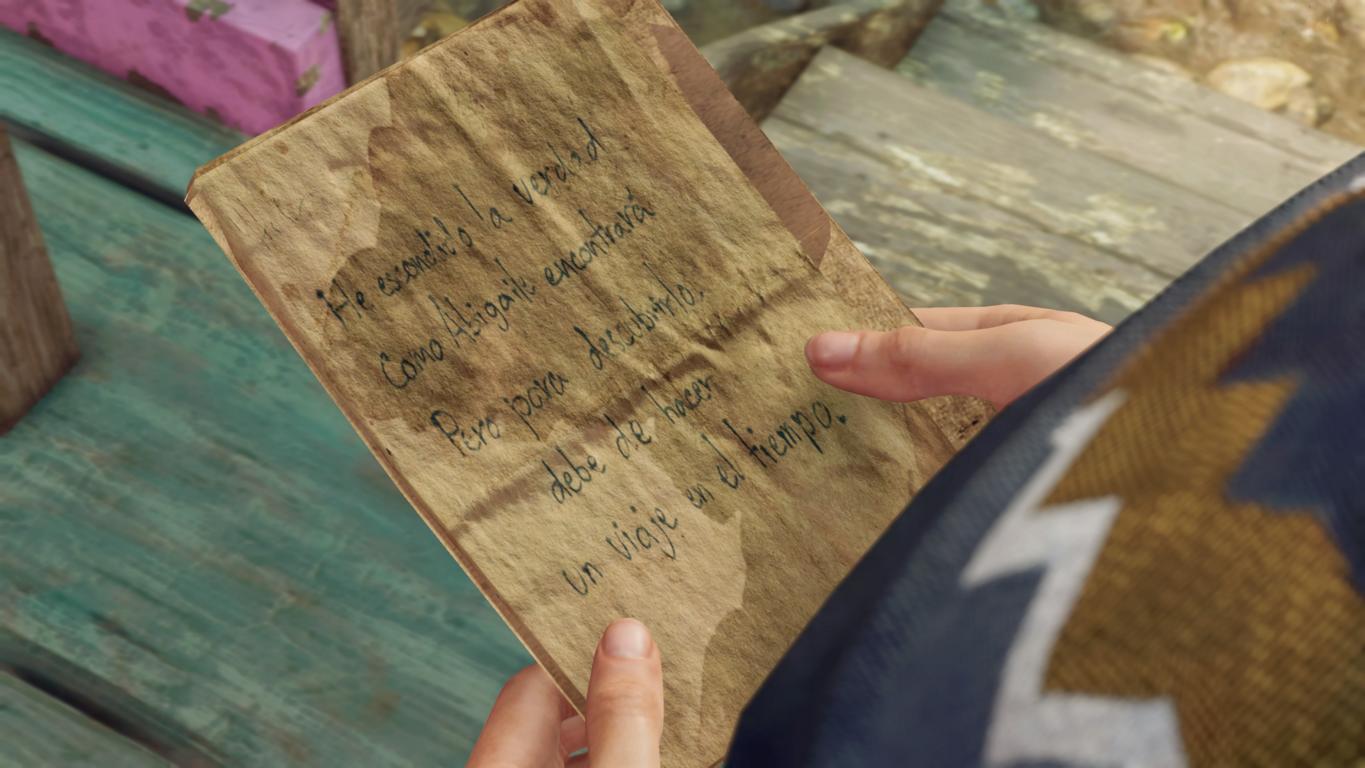 He escondido la verdad
Como Abigaile encontrará
Pero para descubrirlo.
debe de hacer
un viaje en el tiempo.